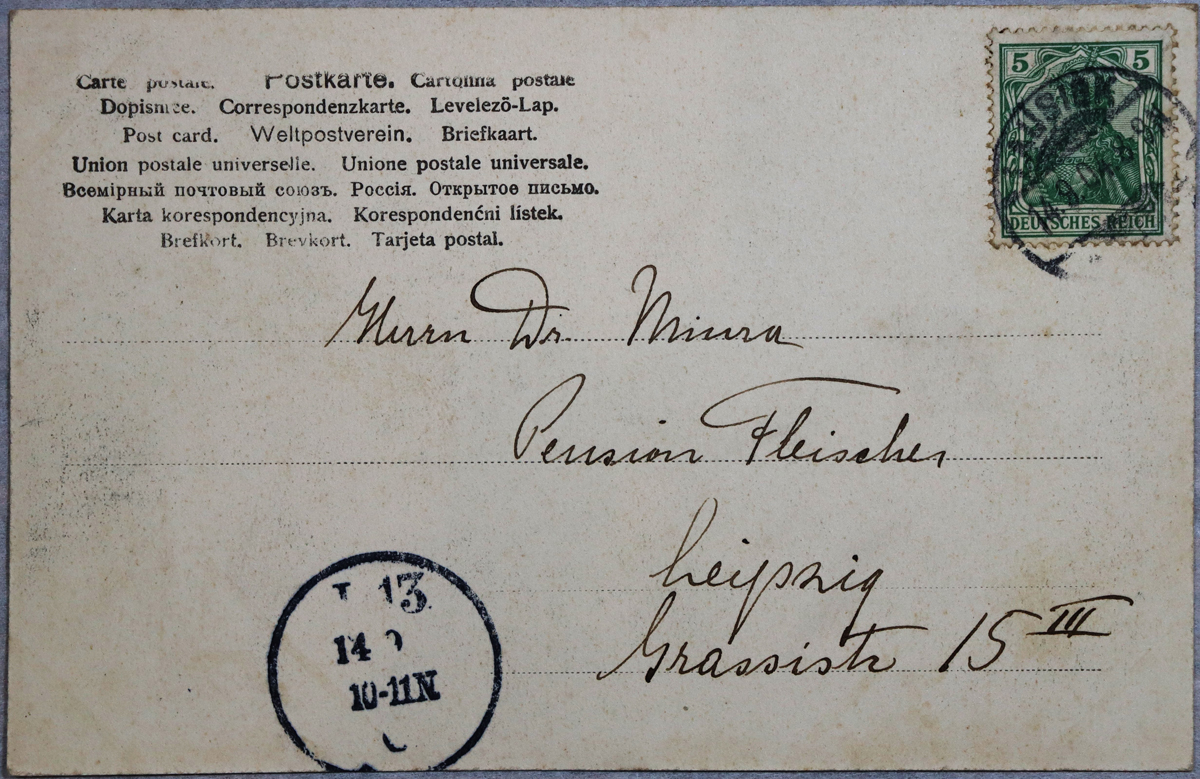 Carte postale. Postkarte. Cartolina postale
Dopisnice. Correspondenzkarte. Levelezö-Lap.
Post card. Weltpostverein. Briefkaart.
Union postale universelle. Unione postale universale.
Всемірный почтовый союзъ. Россія. Открытое письмо.
Karta korespondencyjna. Korespondenćni lístek.
Brefkort. Brevkort. Tarjeta postal.
5 5
DEUTSCHES REICH
14.9.01
Herrn Dr. Miura
Pension Fleischer
Leipzig
Grassistr 15 III
13
14 9
10-11N